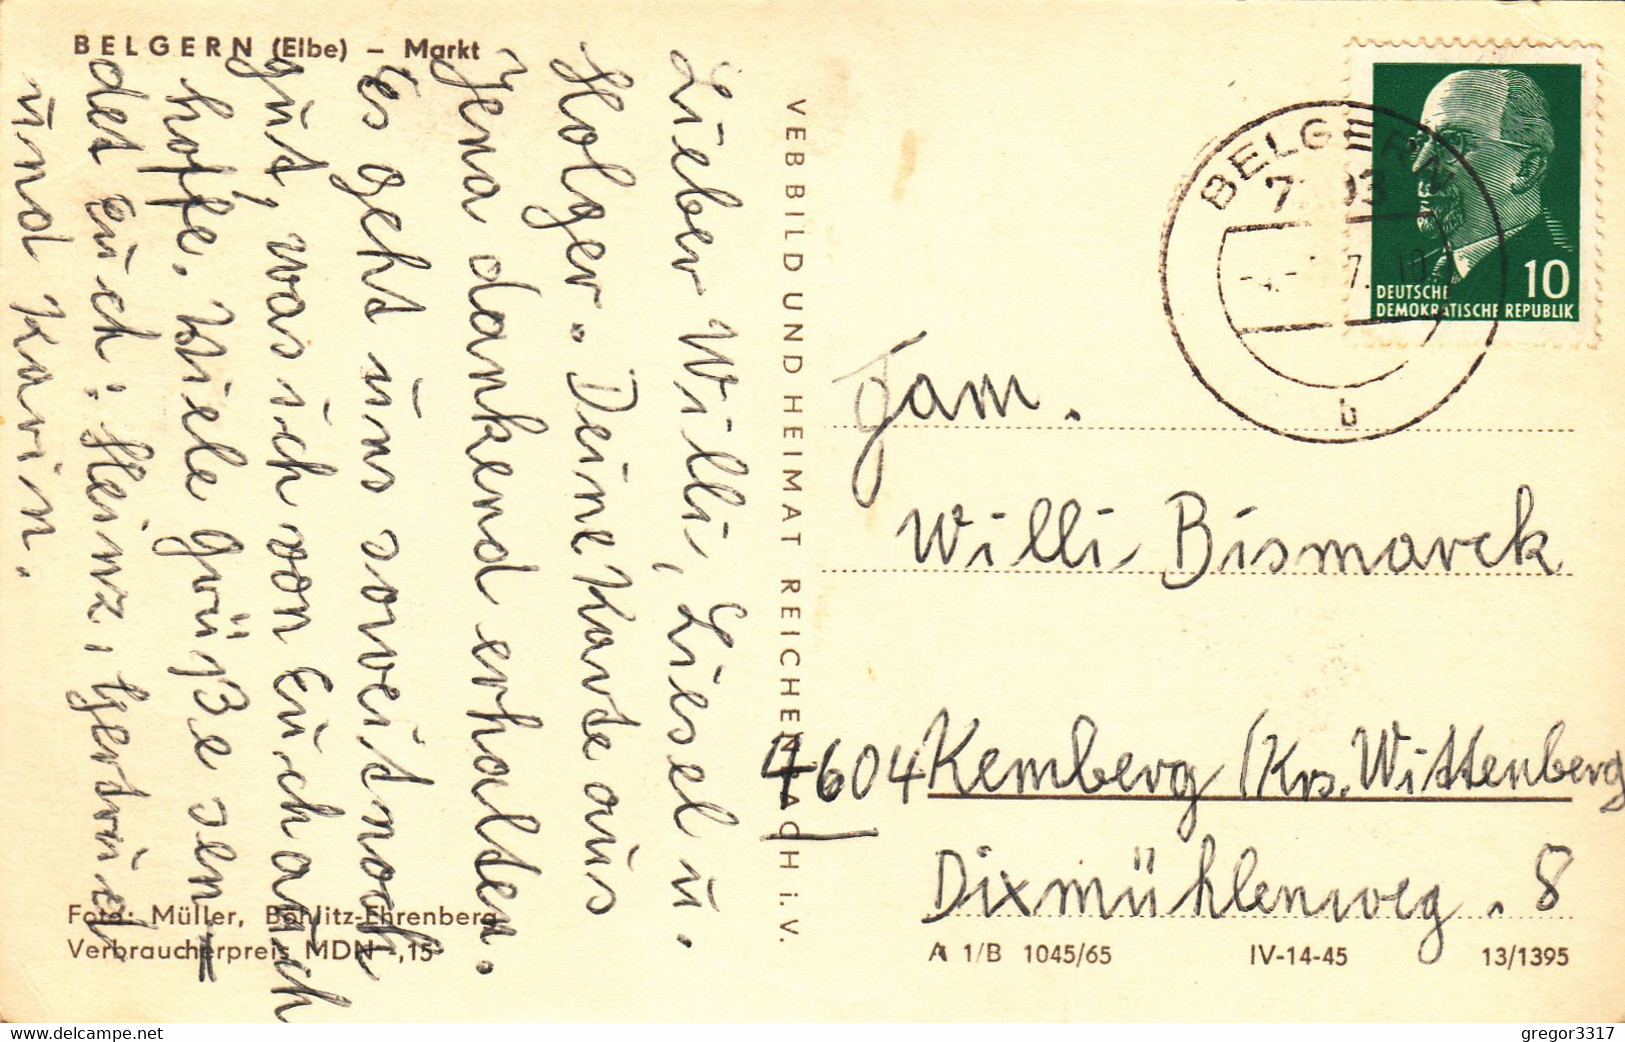 BELGERN (Elbe) – Markt
Lieber Willi, Liesel u.
Holger. Deine Karte aus
Jena dankend erhalten.
Es geht uns soweit noch
gut, was ich von Euch auch
hoffe. Viele Grüße sen-
det Euch: Heinz, Gertrud
und Karin.
Foto: Müller, Böhlitz-Ehrenberg
Verbraucherpreis MDN -,15
VEB BILD UND HEIMAT REICHENBACH i. V.
BELGERN
b
10
DEUTSCHE
DEMOKRATISCHE REPUBLIK
Fam.
Willi Bismarck
4604 Kemberg /Krs. Wittenberg
Dixmühlenweg. 8
A 1/B 1045/65 IV-14-45 13/1395
www.delcampe.net
gregor3317